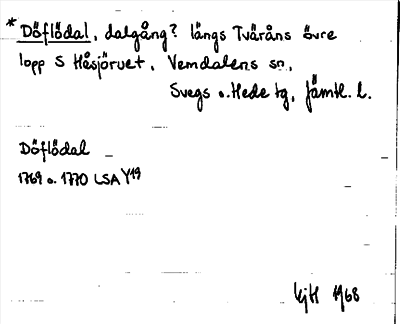 * Döflödal, dalgång? längs Tväråns övre
lopp S Håsjöruet, Vemdalens sn,
Svegs o. Hede tg, Jämtl. l.
Döflödal
1769 o. 1770 LSA Y19
KjH 1968